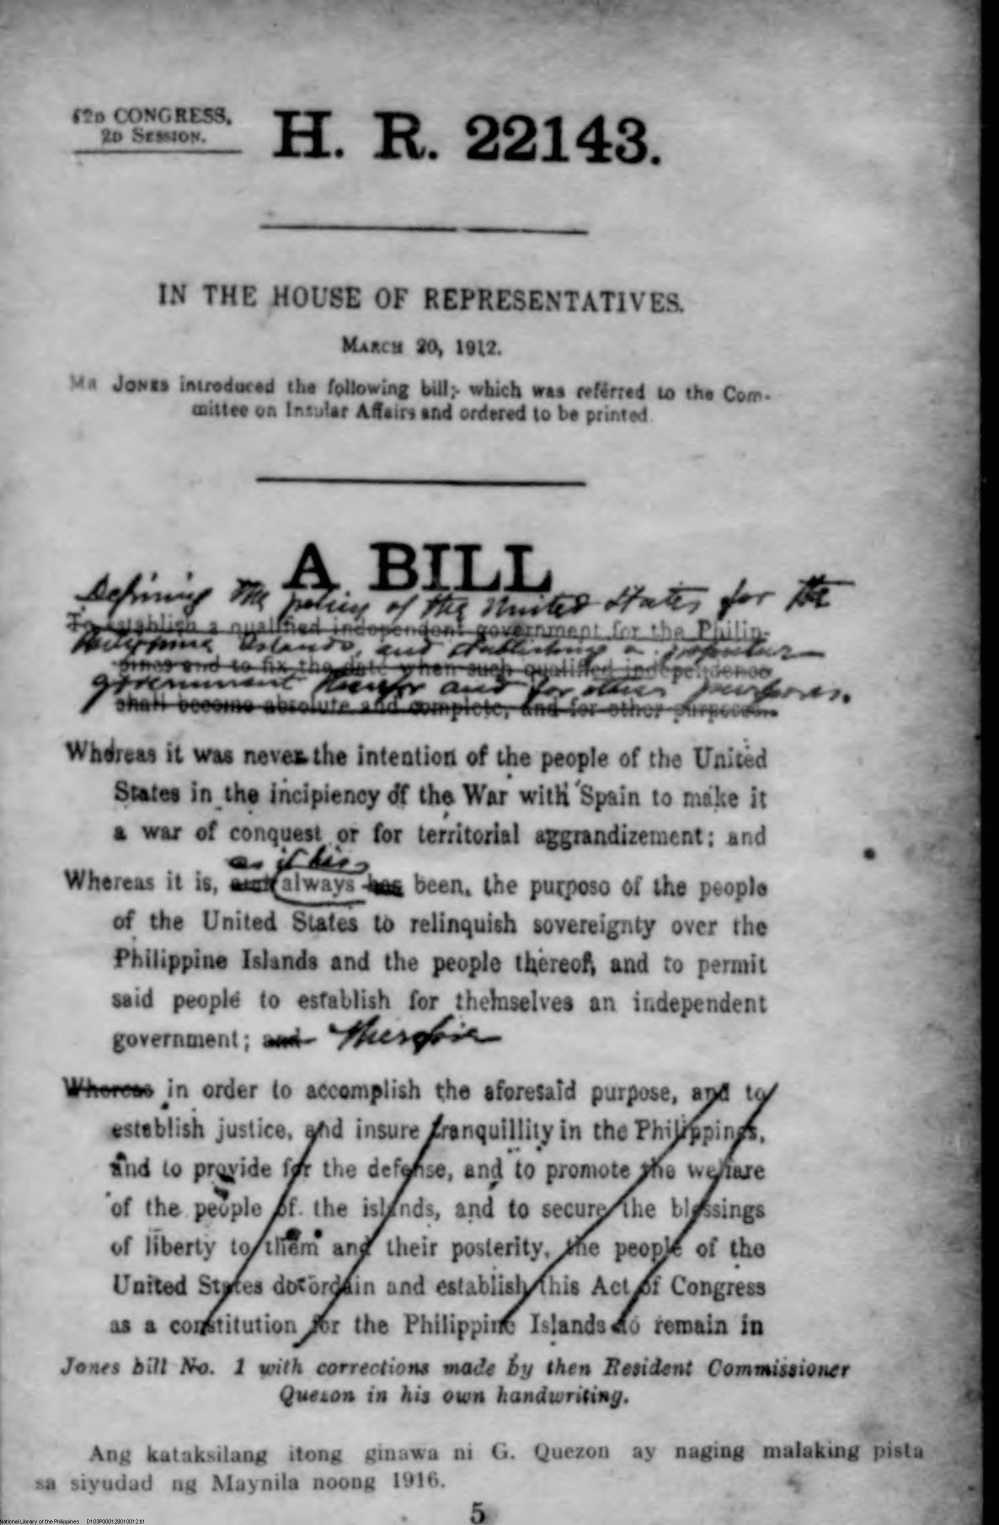 62D CONGRESS,
2D SESSION.
H. R. 22143.
IN THE HOUSE OF REPRESENTATIVES.
MARCH 20, 1912.
MR JONES introduced the following bill; which was referred to the Com-
mittee on Insular Affairs and ordered to be printed.
A BILL
Defining the policy of the United States for the
To establish a qualified independent government for the Philip-
Philippine Islands, and establishing a popular
pines and to fix the date when such qualified independence
government therefor and for other purposes.
shall become absolute and complete, and for other purposes.
Whereas it was never the intention of the people of the United
States in the incipiency of the War with Spain to make it
a war of conquest or for territorial aggrandizement; and
as it has
Whereas it is, and always has been, the purpose of the people
of the United States to relinquish sovereignty over the
Philippine Islands and the people thereof, and to permit
said people to establish for themselves an independent
government; and Therefore
Whereas in order to accomplish the aforesaid purpose, and to
establish justice, and insure tranquillity in the Philippines,
and to provide for the defense, and to promote the welfare
of the people of the islands, and to secure the blessings
of liberty to them and their posterity, the people of the
United States do ordain and establish this Act of Congress
as a constitution for the Philippine Islands to remain in
Jones bill No. 1 with corrections made by then Resident Commissioner
Quezon in his own handwriting.
Ang kataksilang itong ginawa ni G. Quezon ay naging malaking pista
sa siyudad ng Maynila noong 1916.
5
National Library of the Philippines